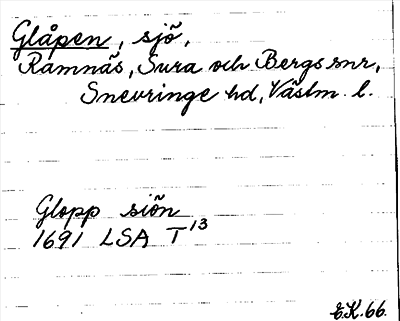 Glåpen, sjö,
Ramnäs, Sura och Bergs snr,
Snevringe hd, Västm. l.
Glopp siön
1691 LSA T13
E.K. 66.